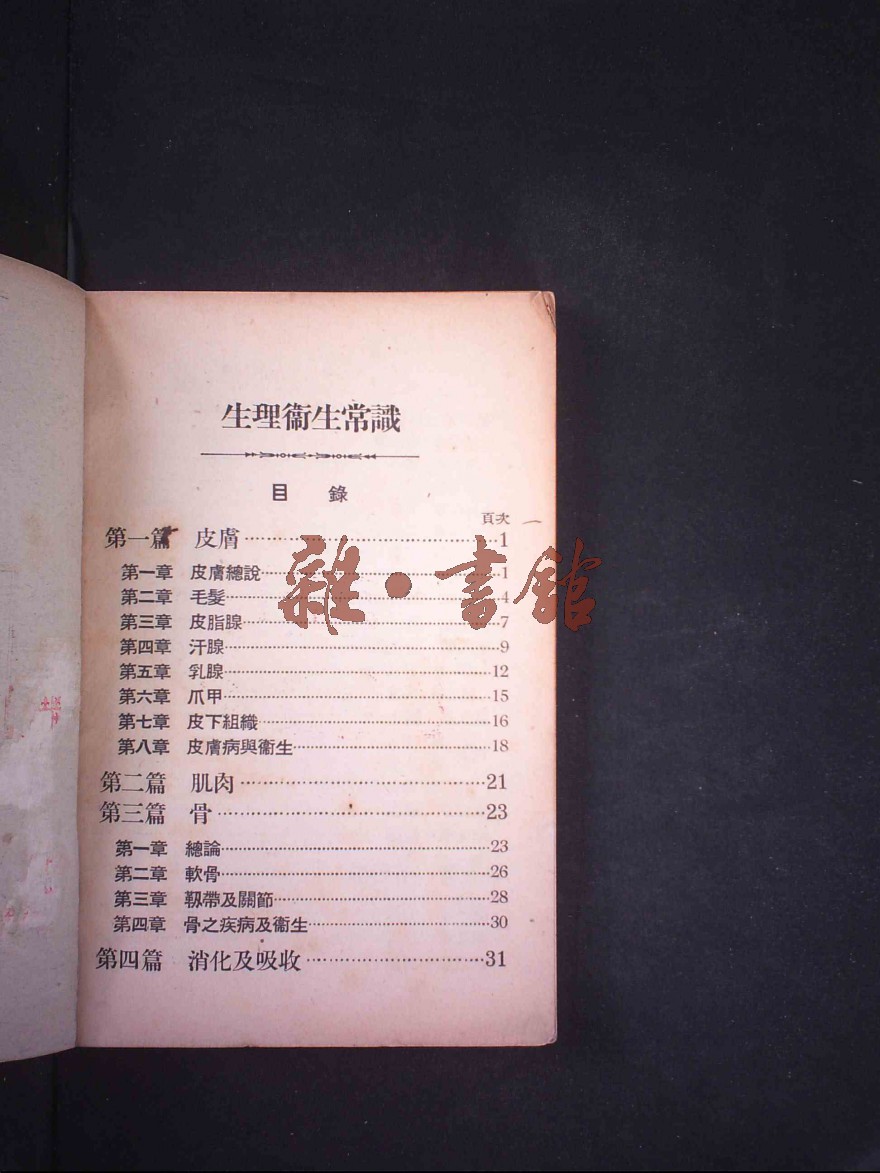 生理衞生常識
目錄
頁次
第一篇 皮膚……1
第一章 皮膚總說……1
第二章 毛髮……4
第三章 皮脂腺……7
第四章 汗腺……9
第五章 乳腺……12
第六章 爪甲……15
第七章 皮下組織……16
第八章 皮膚病與衞生……18
第二篇 肌肉……21
第三篇 骨……23
第一章 總論……23
第二章 軟骨……26
第三章 靱帶及關節……28
第四章 骨之疾病及衞生……30
第四篇 消化及吸收……31
雜·書館